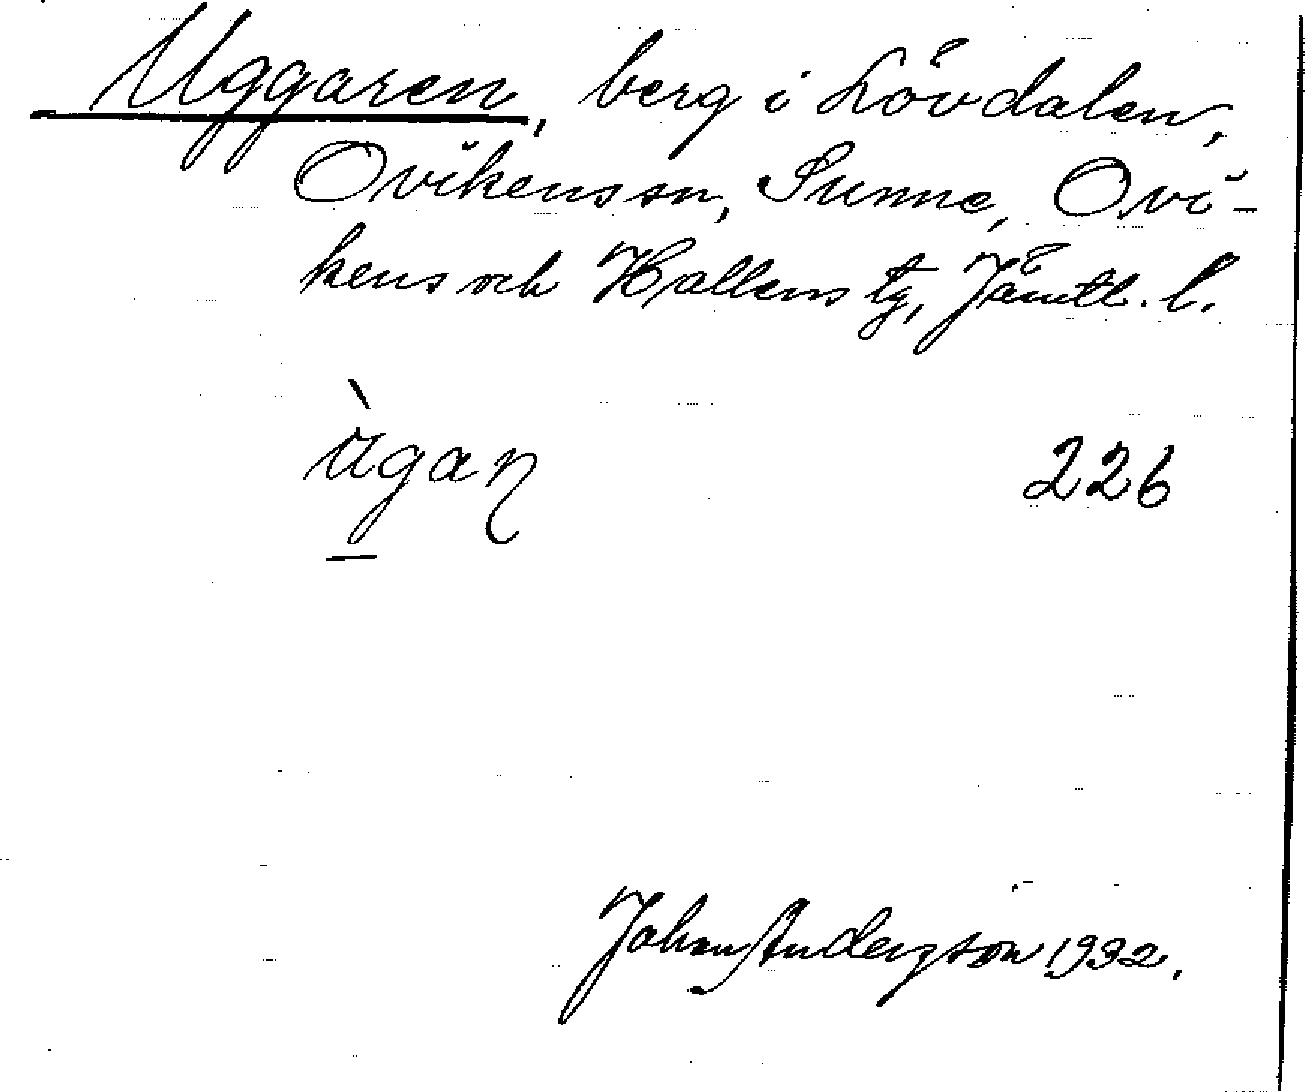 Uggaren, berg i Lövdalen,
Ovikens sn, Sunne, Ovi-
kens och Hallens tg, Jämtl. l.
ùgaꞃ 226
Johan Anderzson 1932.